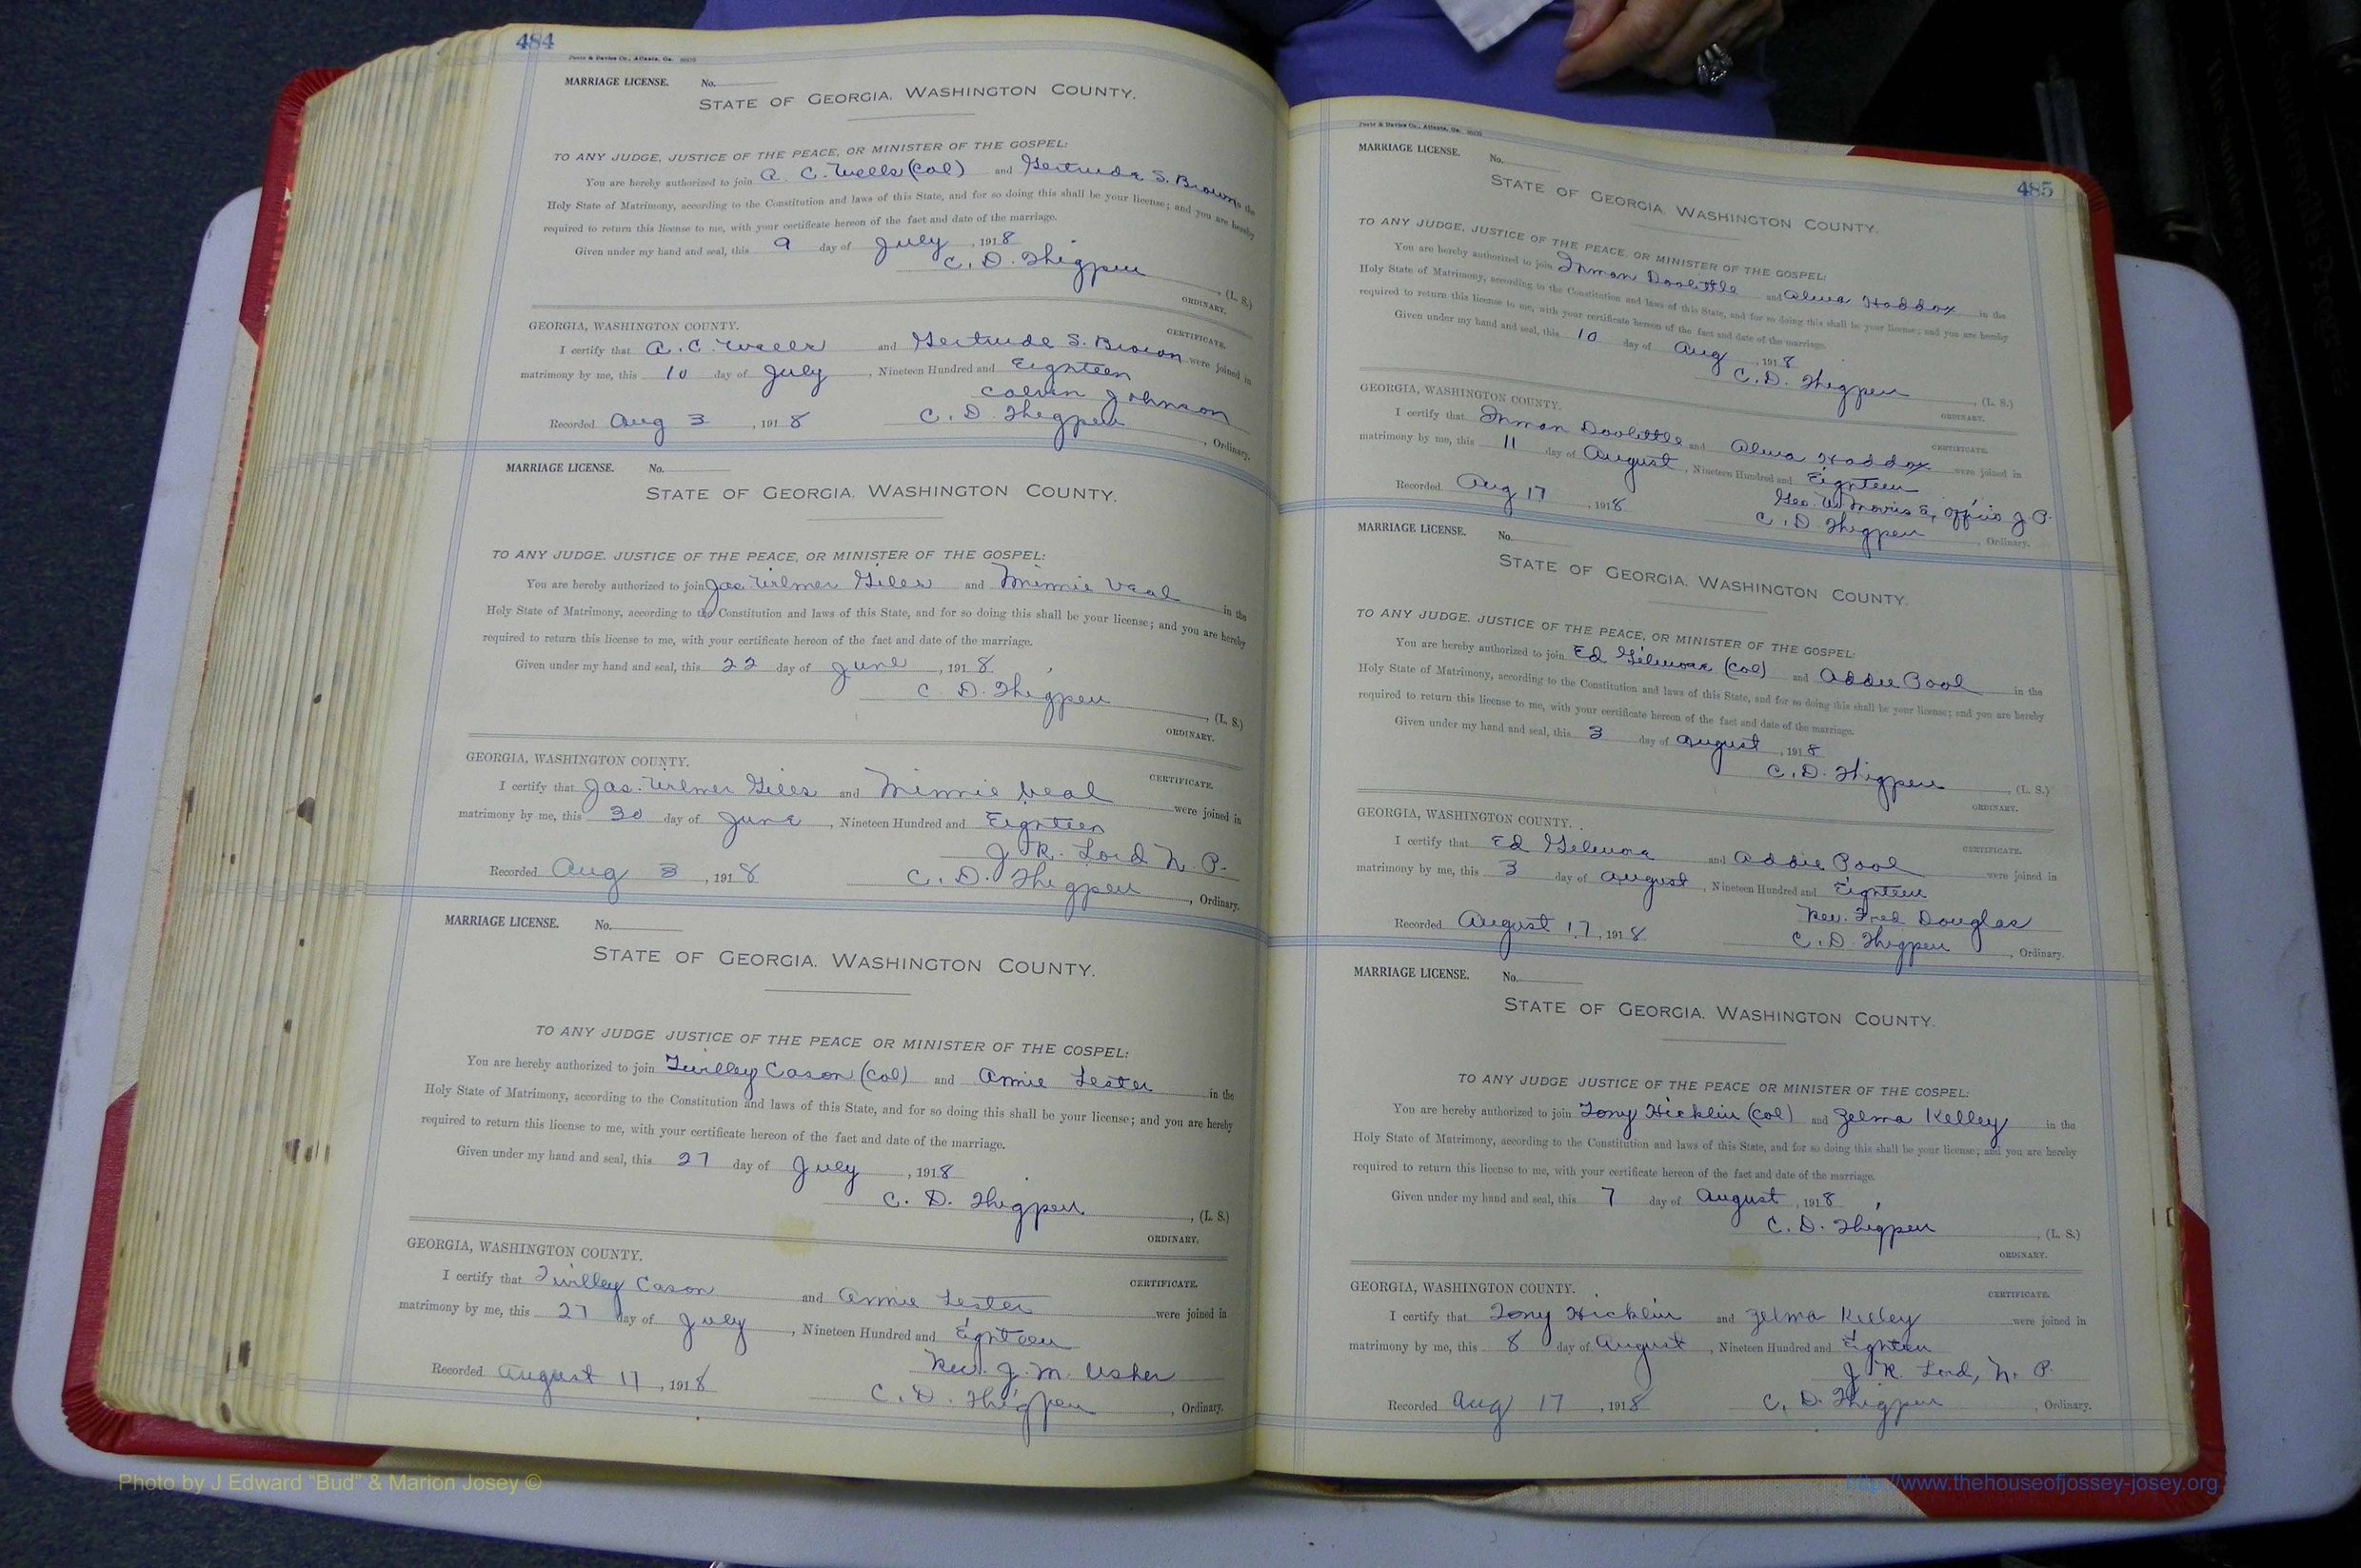 484
MARRIAGE LICENSE. No.
STATE OF GEORGIA. WASHINGTON COUNTY.
TO ANY JUDGE, JUSTICE OF THE PEACE, OR MINISTER OF THE GOSPEL:
You are hereby authorized to join A. C. Wells (Col) and Gertrude S. Brown in the
Holy State of Matrimony, according to the Constitution and laws of this State, and for so doing this shall be your license; and you are hereby
required to return this license to me, with your certificate hereon of the fact and date of the marriage.
Given under my hand and seal, this 9 day of July, 1918
C. D. Thigpen, (L. S.)
ORDINARY.
GEORGIA, WASHINGTON COUNTY.
CERTIFICATE.
I certify that A. C. Wells and Gertrude S. Brown were joined in
matrimony by me, this 10 day of July, Nineteen Hundred and Eighteen
Calvin Johnson
Recorded Aug 3, 1918 C. D. Thigpen, Ordinary.
MARRIAGE LICENSE. No.
STATE OF GEORGIA. WASHINGTON COUNTY.
TO ANY JUDGE, JUSTICE OF THE PEACE, OR MINISTER OF THE GOSPEL:
You are hereby authorized to join Jas. Wilmer Giles and Minnie Veal in the
Holy State of Matrimony, according to the Constitution and laws of this State, and for so doing this shall be your license; and you are hereby
required to return this license to me, with your certificate hereon of the fact and date of the marriage.
Given under my hand and seal, this 22 day of June, 1918
C. D. Thigpen, (L. S.)
ORDINARY.
GEORGIA, WASHINGTON COUNTY.
CERTIFICATE.
I certify that Jas. Wilmer Giles and Minnie Veal were joined in
matrimony by me, this 30 day of June, Nineteen Hundred and Eighteen
J. R. Lord N. P.
Recorded Aug 3, 1918 C. D. Thigpen, Ordinary.
MARRIAGE LICENSE. No.
STATE OF GEORGIA. WASHINGTON COUNTY.
TO ANY JUDGE JUSTICE OF THE PEACE OR MINISTER OF THE GOSPEL:
You are hereby authorized to join Twilley Cason (Col) and Annie Lester in the
Holy State of Matrimony, according to the Constitution and laws of this State, and for so doing this shall be your license; and you are hereby
required to return this license to me, with your certificate hereon of the fact and date of the marriage.
Given under my hand and seal, this 27 day of July, 1918
C. D. Thigpen, (L. S.)
ORDINARY.
GEORGIA, WASHINGTON COUNTY.
CERTIFICATE.
I certify that Twilley Cason and Annie Lester were joined in
matrimony by me, this 27 day of July, Nineteen Hundred and Eighteen
Rev. J. M. Usher
Recorded August 17, 1918 C. D. Thigpen, Ordinary.
485
MARRIAGE LICENSE. No.
STATE OF GEORGIA. WASHINGTON COUNTY.
TO ANY JUDGE, JUSTICE OF THE PEACE, OR MINISTER OF THE GOSPEL:
You are hereby authorized to join Inman Doolittle and Alma Haddox in the
Holy State of Matrimony, according to the Constitution and laws of this State, and for so doing this shall be your license; and you are hereby
required to return this license to me, with your certificate hereon of the fact and date of the marriage.
Given under my hand and seal, this 10 day of Aug, 1918
C. D. Thigpen, (L. S.)
ORDINARY.
GEORGIA, WASHINGTON COUNTY.
CERTIFICATE.
I certify that Inman Doolittle and Alma Haddox were joined in
matrimony by me, this 11 day of August, Nineteen Hundred and Eighteen
Geo. W. Morris Ex officio J. P.
Recorded Aug 17, 1918 C. D. Thigpen, Ordinary.
MARRIAGE LICENSE. No.
STATE OF GEORGIA. WASHINGTON COUNTY.
TO ANY JUDGE, JUSTICE OF THE PEACE, OR MINISTER OF THE GOSPEL:
You are hereby authorized to join Ed Gilmore (Col) and Addie Pool in the
Holy State of Matrimony, according to the Constitution and laws of this State, and for so doing this shall be your license; and you are hereby
required to return this license to me, with your certificate hereon of the fact and date of the marriage.
Given under my hand and seal, this 3 day of August, 1918
C. D. Thigpen, (L. S.)
ORDINARY.
GEORGIA, WASHINGTON COUNTY.
CERTIFICATE.
I certify that Ed Gilmore and Addie Pool were joined in
matrimony by me, this 3 day of August, Nineteen Hundred and Eighteen
Rev. Fred Douglas
Recorded August 17, 1918 C. D. Thigpen, Ordinary.
MARRIAGE LICENSE. No.
STATE OF GEORGIA. WASHINGTON COUNTY.
TO ANY JUDGE JUSTICE OF THE PEACE OR MINISTER OF THE GOSPEL:
You are hereby authorized to join Tony Hicklin (Col) and Zelma Kelley in the
Holy State of Matrimony, according to the Constitution and laws of this State, and for so doing this shall be your license; and you are hereby
required to return this license to me, with your certificate hereon of the fact and date of the marriage.
Given under my hand and seal, this 7 day of August, 1918
C. D. Thigpen, (L. S.)
ORDINARY.
GEORGIA, WASHINGTON COUNTY.
CERTIFICATE.
I certify that Tony Hicklin and Zelma Kelley were joined in
matrimony by me, this 8 day of August, Nineteen Hundred and Eighteen
J. R. Lord, N. P.
Recorded Aug 17, 1918 C. D. Thigpen, Ordinary.
Photo by J Edward "Bud" & Marion Josey ©
http://www.thehouseofjossey-josey.org